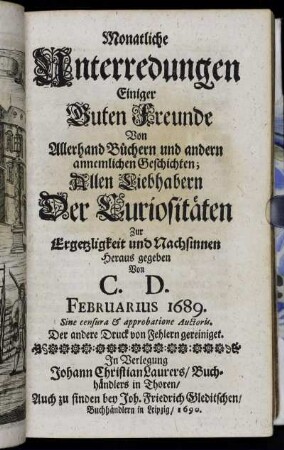 Monatliche
Unterredungen
Einiger
Guten Freunde
Von
Allerhand Büchern und andern
annemlichen Geschichten;
Allen Liebhabern
Der Curiositäten
Zur
Ergetzligkeit und Nachsinnen
Heraus gegeben
Von
C. D.
FEBRUARIUS 1689.
Sine censura & approbatione Auctoris.
Der andere Druck von Fehlern gereiniget.
In Verlegung
Johann Christian Laurers/ Buch-
händlers in Thoren/
Auch zu finden bey Joh. Friedrich Gleditschen/
Buchhändlern in Leipzig/ 1690.